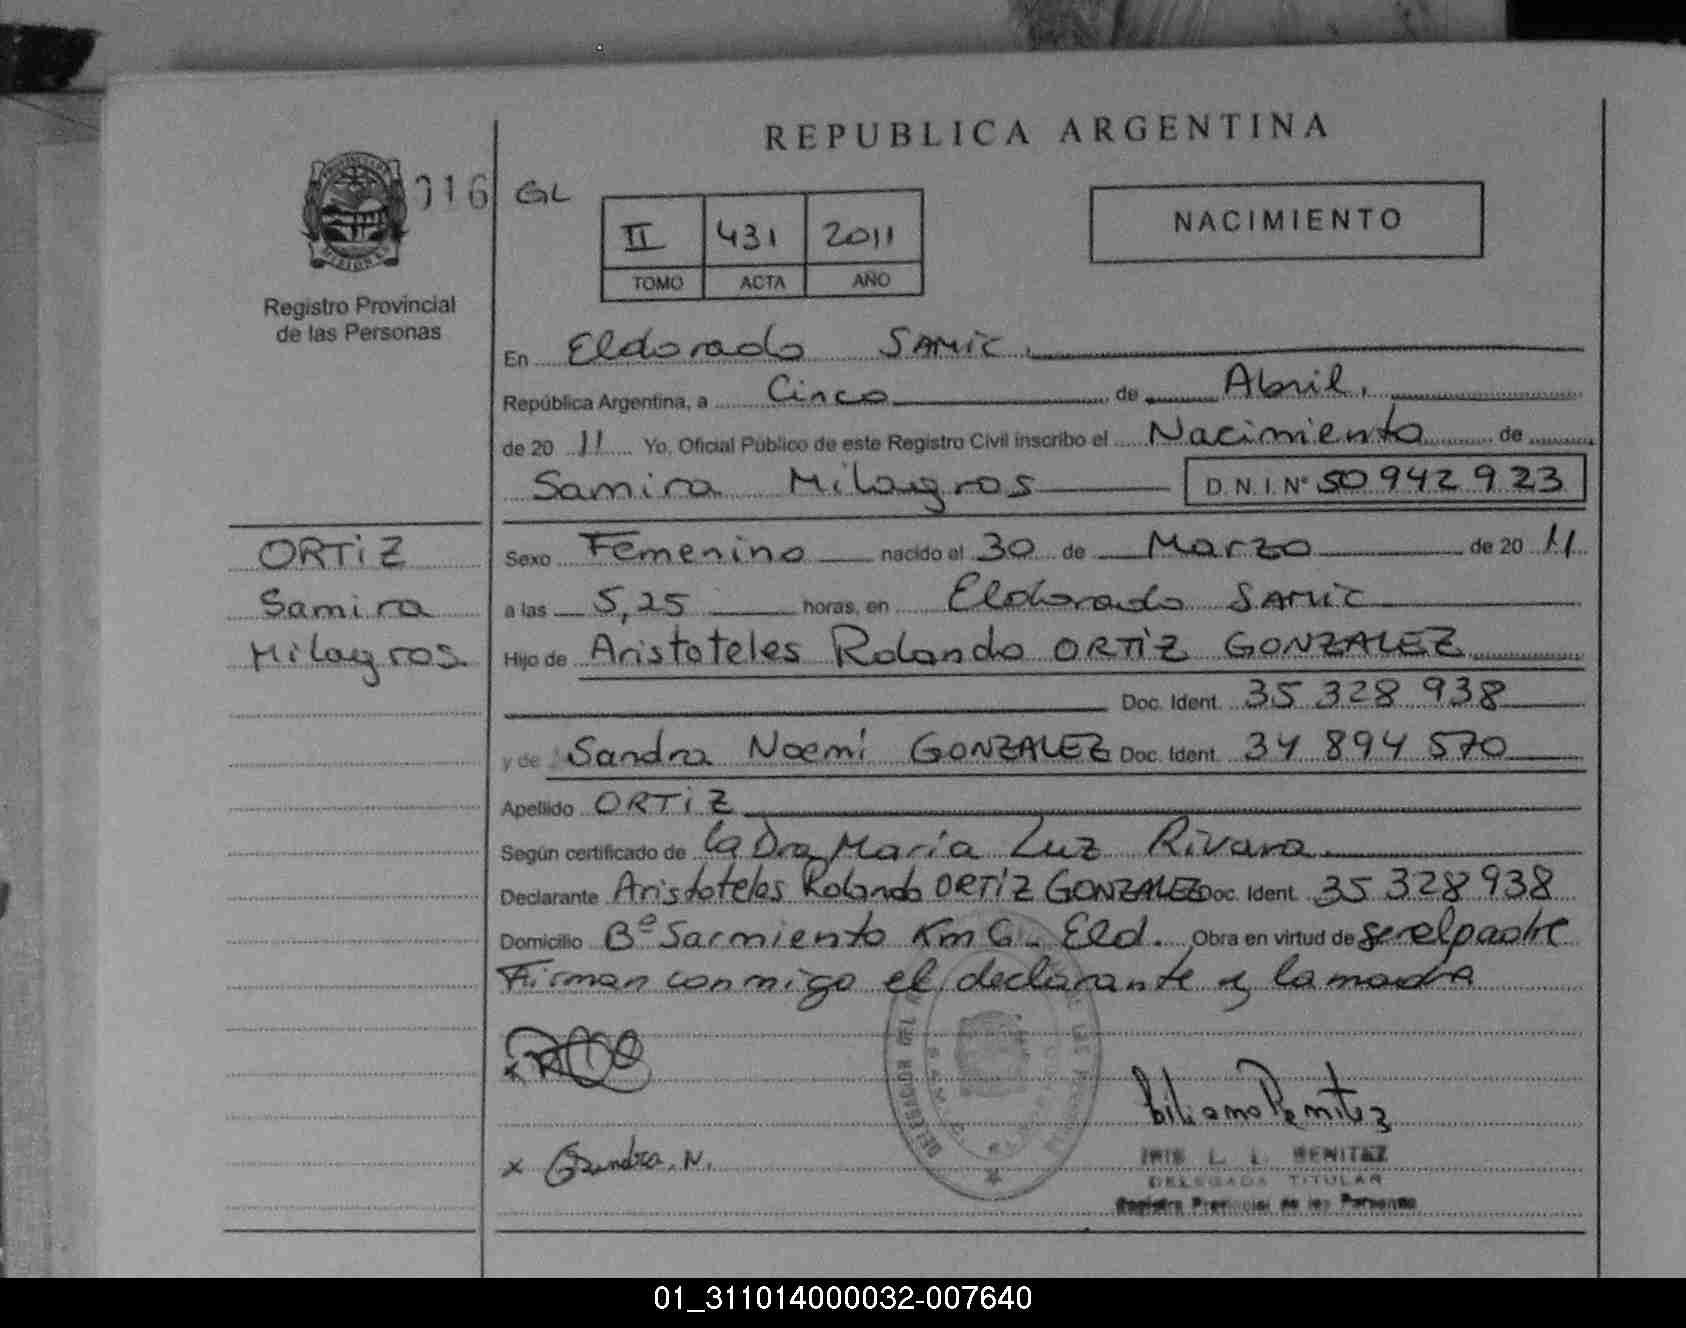 REPUBLICA ARGENTINA
016 GL
NACIMIENTO
II 431 2011
TOMO ACTA AÑO
Registro Provincial
de las Personas
En Eldorado SAMIC.
República Argentina, a Cinco de Abril,
de 20 11 Yo, Oficial Público de este Registro Civil inscribo el Nacimiento de
Samira Milagros D.N.I.Nº 50 942 923
ORTiZ
Samira
Milagros.
Sexo Femenino nacido el 30 de Marzo de 20 11
a las 5,25 horas, en Eldorado SAMIC
Hijo de Aristoteles Rolando ORTiZ GONZALEZ
Doc. Ident. 35 328 938
y de Sandra Noemi GONZALEZ Doc. Ident. 34 894 570
Apellido ORTiZ
Según certificado de la Dra María Luz Rivara.
Declarante Aristoteles Rolando ORTiZ GONZALEZ Doc. Ident. 35 328 938
Domicilio Bº Sarmiento Km 6 - Eld. Obra en virtud de ser el padre
Firman conmigo el declarante y la madre
x
Liliana Benitez
x Sandra. N.
IRIS L. L. BENITEZ
DELEGADA TITULAR
Registro Provincial de las Personas
01_311014000032-007640